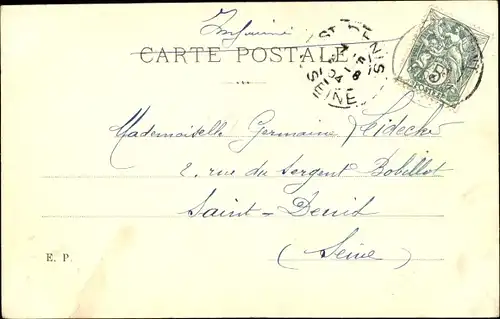 Imprimé
CARTE POSTALE
ST DENIS
SEINE
5
Mademoiselle Germaine Leidecker
2, rue du Sergent Bobillot
Saint-Denis
(Seine)
E. P.